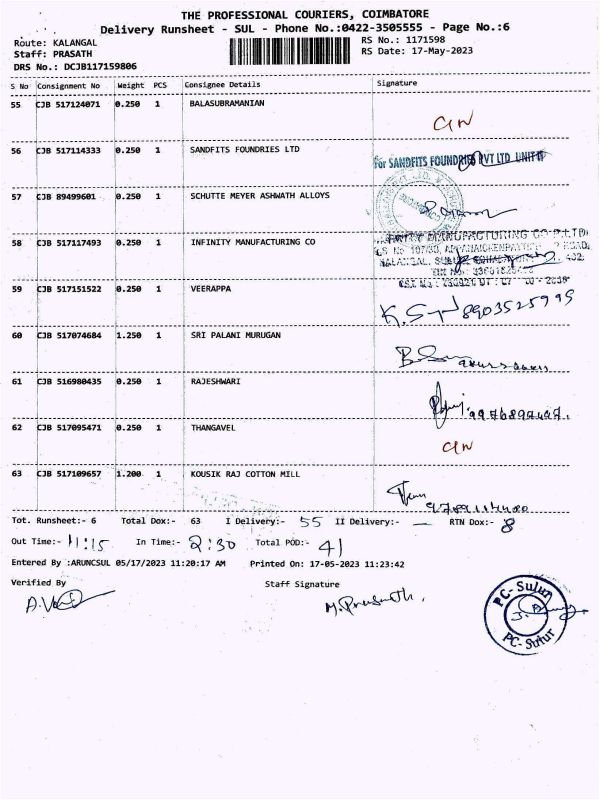 THE PROFESSIONAL COURIERS, COIMBATORE
Delivery Runsheet - SUL - Phone No.:0422-3505555 - Page No.:6
Route: KALANGAL
RS No.: 1171598
Staff: PRASATH
RS Date: 17-May-2023
DRS No.: DCJB117159806
S No Consignment No Weight PCS Consignee Details Signature
55 CJB 517124071 0.250 1 BALASUBRAMANIAN
56 CJB 517114333 0.250 1 SANDFITS FOUNDRIES LTD
For SANDFITS FOUNDRIES PVT LTD UNIT II
57 CJB 89499601 0.250 1 SCHUTTE MEYER ASHWATH ALLOYS
58 CJB 517117493 0.250 1 INFINITY MANUFACTURING CO
MANUFACTURING CO P.LTD
59 CJB 517151522 0.250 1 VEERAPPA
8903525995
60 CJB 517074684 1.250 1 SRI PALANI MURUGAN
61 CJB 516980435 0.250 1 RAJESHWARI
62 CJB 517095471 0.250 1 THANGAVEL
63 CJB 517109657 1.200 1 KOUSIK RAJ COTTON MILL
Tot. Runsheet:- 6 Total Dox:- 63 I Delivery:- 55 II Delivery:- — RTN Dox:- 8
Out Time:- 11:15 In Time:- 2:30 Total POD:- 41
Entered By :ARUNCSUL 05/17/2023 11:20:17 AM Printed On: 17-05-2023 11:23:42
Verified By Staff Signature
M. Prasath.
PC-Sulur
PC-Sulur